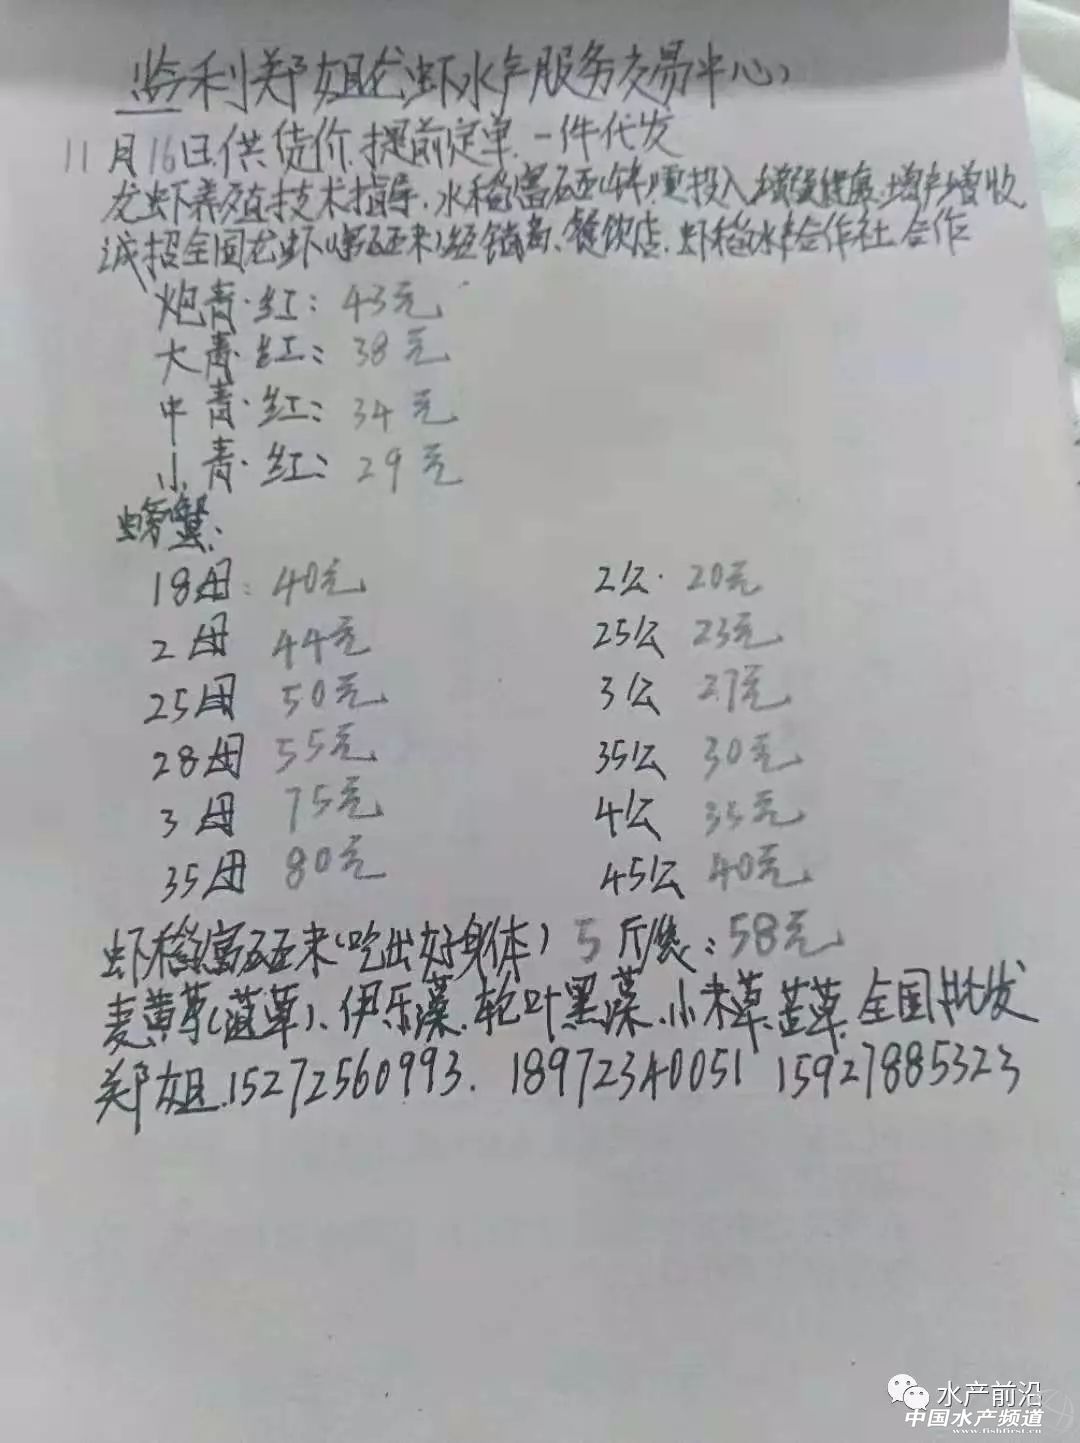 监利郑姐龙虾水产服务交易中心
11月16日.供货价.提前定单.一件代发
龙虾养殖技术指导.水稻富硒(锌)更投入增强健康.增产增收
诚招全国龙虾(富硒米)经销商、餐饮店.虾稻水产合作社合作
炮青·红：43元
大青·红：38元
中青·红：34元
小青·红：29元
螃蟹：
18母：40元 2公·20元
2母 44元 25公 23元
25母 50元 3公 27元
28母 55元 35公 30元
3母 75元 4公 35元
35母 80元 45公 40元
虾稻富硒米(吃出好身体) 5斤/袋：58元
麦黄草(菹草)、伊乐藻.轮叶黑藻.小米草.苦草.全国批发
郑姐.15272560993. 18972340051 15927885323
水产前沿
中国水产频道
www.fishfirst.cn